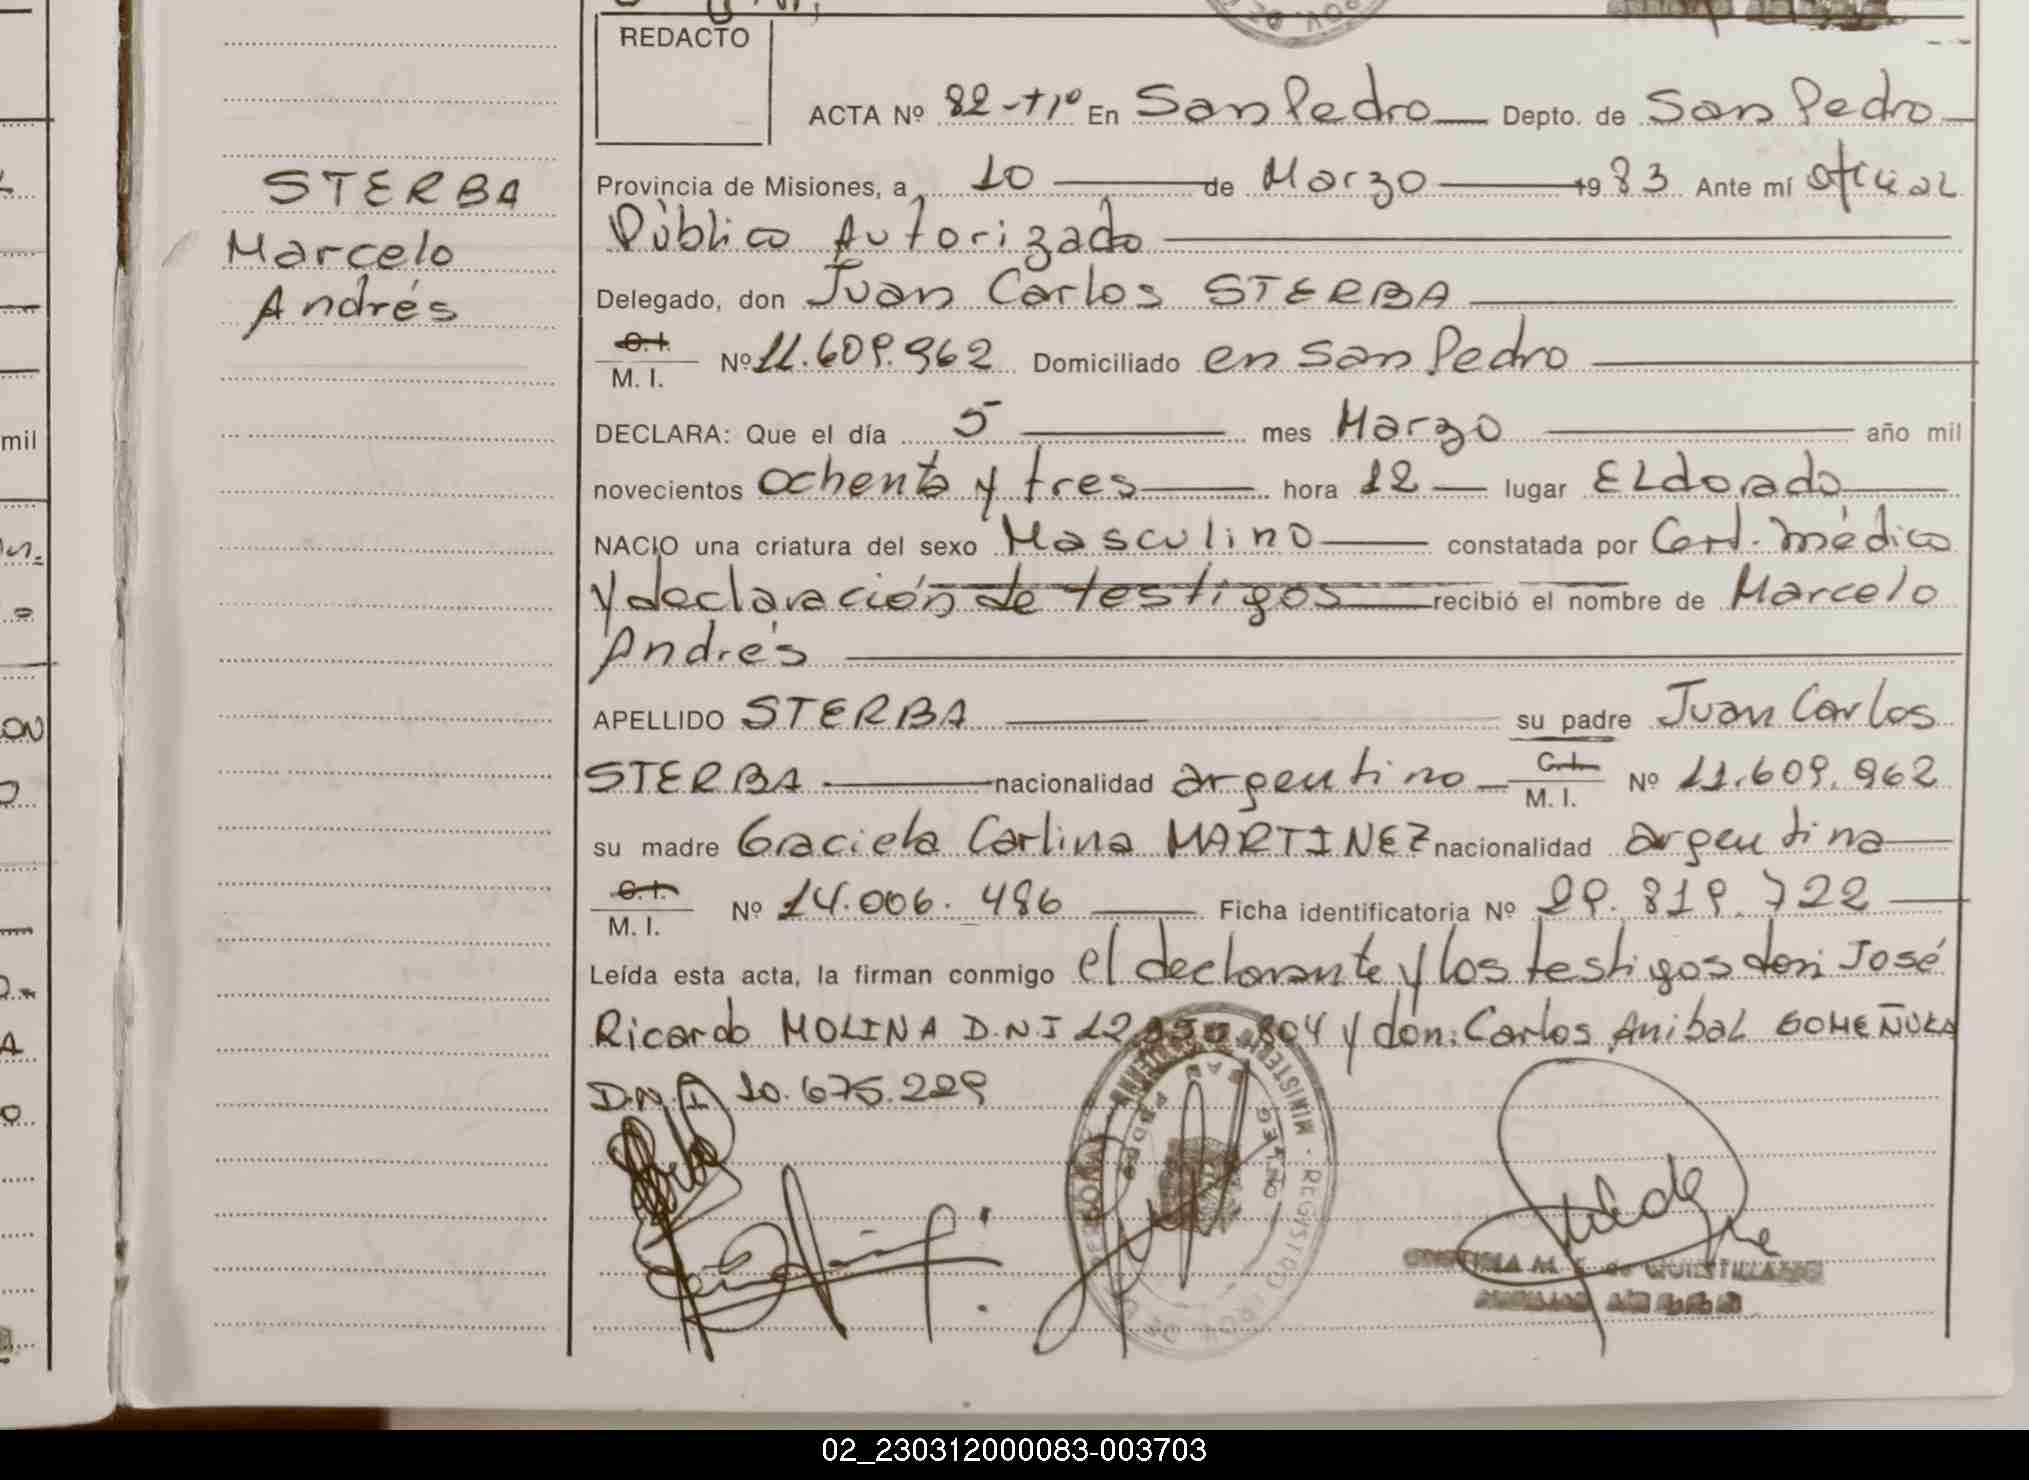 REDACTO
ACTA Nº 82-Tº En San Pedro Depto. de San Pedro
STERBA
Marcelo
Andrés
Provincia de Misiones, a 10 de Marzo 1983 Ante mí oficial
Público Autorizado
Delegado, don Juan Carlos STERBA
C.I.
M. I. Nº 11.609.962 Domiciliado en San Pedro
DECLARA: Que el día 5 mes Marzo año mil
novecientos ochenta y tres hora 12 lugar ELdorado
NACIO una criatura del sexo Masculino constatada por Cert. médico
y declaración de testigos recibió el nombre de Marcelo
Andrés
APELLIDO STERBA su padre Juan Carlos
STERBA nacionalidad argentino C.I. M. I. Nº 11.609.962
su madre Graciela Carlina MARTINEZ nacionalidad argentina
C.I.
M. I. Nº 14.006.486 Ficha identificatoria Nº 29.819.722
Leída esta acta, la firman conmigo el declarante y los testigos don: José
Ricardo MOLINA D.N.I 12. 804 y don: Carlos Anibal
D.N.I 10.675.229
mil
02_230312000083-003703